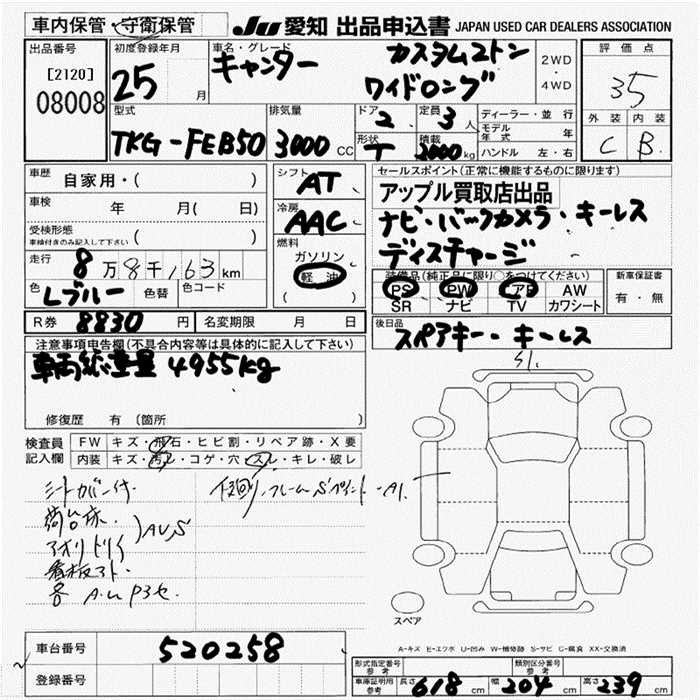 車内保管・守衛保管
JU 愛知 出品申込書 JAPAN USED CAR DEALERS ASSOCIATION
出品番号
[2120]
08008
初度登録年月
25 月
車名・グレード
キャンター
カスタムコトン
ワイドロング
2WD
・
4WD
評価点
3.5
外装 内装
C B
型式
TKG-FEB50
排気量
3000 CC
ドア
2
形状
T
定員
3 人
積載
2000 kg
ディーラー・並行
モデル年式 年
ハンドル 左・右
車歴
自家用・( )
車検
年 月( 日)
受検形態
車検付きのみ記入して下さい ( )
走行
8万8千163km
色
Lブルー
色替
色コード
R券 8830 円
名変期限 月 日
シフト
AT
冷房
AAC
燃料
ガソリン
軽油
( )
セールスポイント(正常に機能するものに限ります)
アップル買取店出品
ナビ・バックカメラ・キーレス
ディスチャージ
装備品(純正品に限り○をつけてください)
PS PW エアB AW
SR ナビ TV カワシート
新車保証書
有・無
後日品
スペアキー・キーレス
注意事項申告欄(不具合内容等は具体的に記入して下さい)
車両総重量 4955kg
修復歴 有 (箇所 )
検査員記入欄
FW キズ・飛石・ヒビ割・リペア跡・X要
内装 キズ・汚れ・コゲ・穴・スレ・キレ・破レ
シートカバー付
荷台床
アオリ
AUS
フレームSペイント
スペア
A-キズ E-エクボ U-凹み W-補修跡 S-サビ C-腐食 XX-交換済
車台番号 520258
登録番号
形式指定番号 参考
類別区分番号 参考
車庫証明用 参考
長さ 618 cm 幅 204 cm 高さ 239 cm